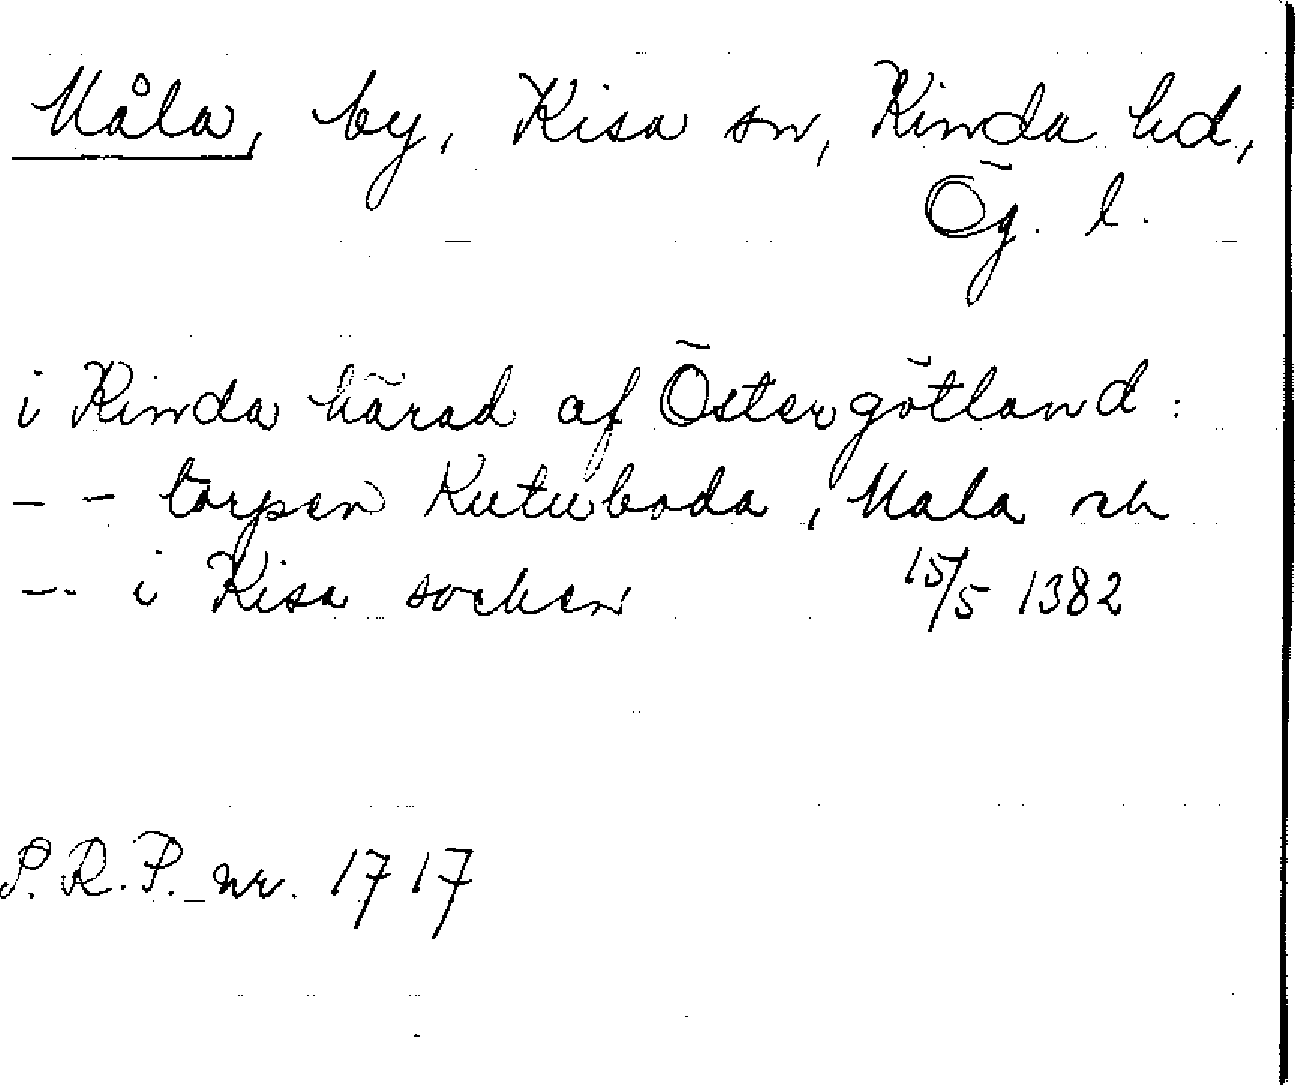 Måla, by, Kisa sn, Kinda hd,
Ög. l.
i Kinda härad af Östergötland:
- - torpen Kutuboda, Mala och
-- i Kisa socken 15/5 1382
S.R.P. nr. 1717